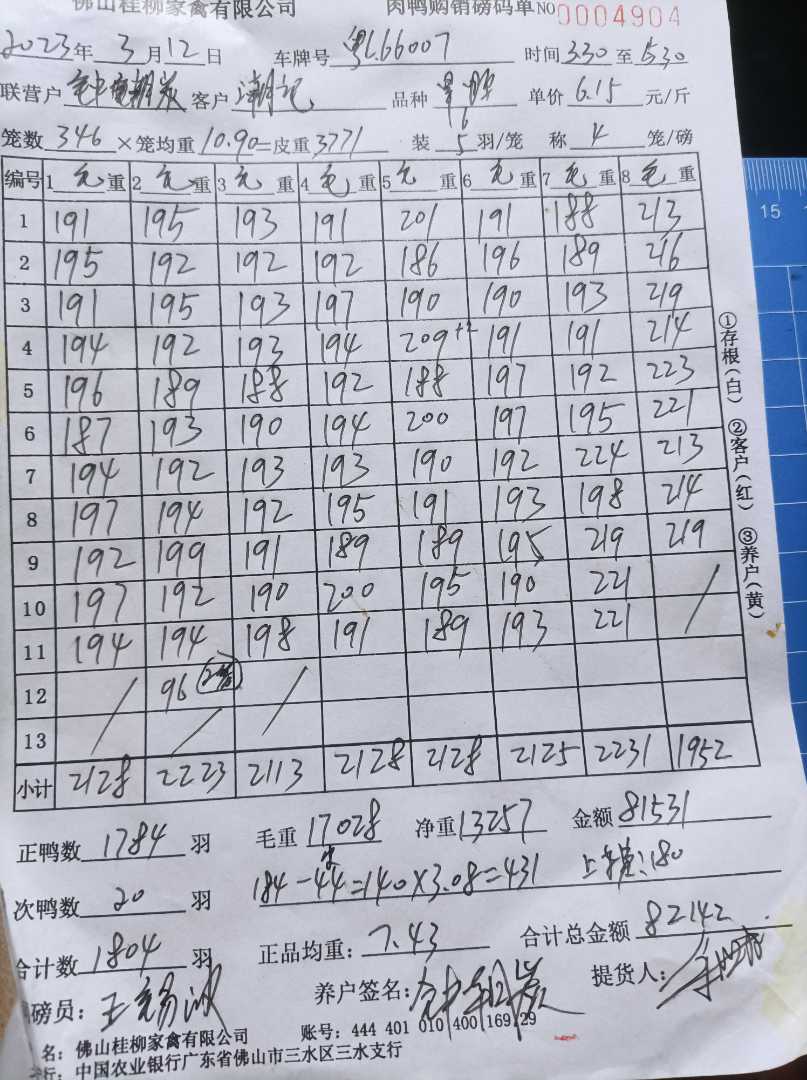 佛山桂柳家禽有限公司 肉鸭购销磅码单 NO 0004904
2023年 3月12日 车牌号 粤L66007 时间 330 至 530
联营户 客户 潮记 品种 单价 6.15 元/斤
笼数 346 ×笼均重 10.90 =皮重 3771 装 5 羽/笼 称 4 笼/磅
编号 1 毛 重 2 毛 重 3 毛 重 4 毛 重 5 毛 重 6 毛 重 7 毛 重 8 毛 重
1 191 195 193 191 201 191 188 213
2 195 192 192 192 186 196 189 216
3 191 195 193 197 190 190 193 219
4 194 192 193 194 209+2 191 191 214
5 196 189 188 192 188 197 192 223
6 187 193 190 194 200 197 195 221
7 194 192 193 193 190 192 224 213
8 197 194 192 195 191 193 198 214
9 192 199 191 189 189 195 219 219
10 197 192 190 200 195 190 221 /
11 194 194 198 191 189 193 221
12 / 96 /
13 /
小计 2128 2223 2113 2128 2128 2125 2231 1952
正鸭数 1784 羽 毛重 17028 净重 13257 金额 81531
次鸭数 20 羽 184-44=140×3.08=431 180
合计数 1804 羽 正品均重: 7.43 合计总金额 82142
磅员: 养户签名: 提货人:
名: 佛山桂柳家禽有限公司 账号: 444 401 010 400 169 29
行: 中国农业银行广东省佛山市三水区三水支行
①存根(白) ②客户(红) ③养户(黄)
15